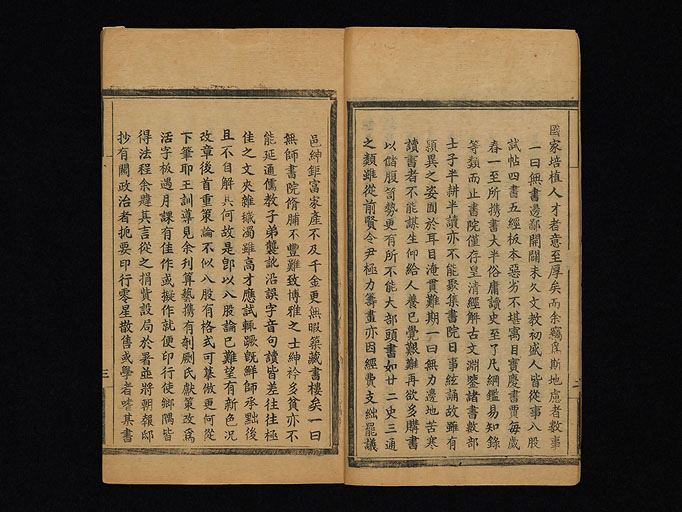 國家培植人才者意至厚矣而余竊為斯地慮者數事
一曰無書邊鄙開闢未久文教初盛人皆從事八股
試帖四書五經板本惡劣不堪寓目實慶書賈每歲
春一至所携書大半俗庸讀史至了凡綱鑑易知錄
等類而止書院僅存皇清經解古文淵鑒諸書數部
士子半耕半讀亦不能聚集書院日事絃誦故雖有
穎異之姿囿於耳目淹貫難期一曰無力邊地苦寒
讀書者不能謀生仰給人養已覺艱難再欲多購書
以儲腹笥勢更有所不能大部頭書如廿二史三通
之類雖從前賢令尹極力籌畫亦因經費支絀罷議
二
邑紳鉅富家產不及千金更無暇築藏書樓矣一曰
無師書院脩脯不豐難致博雅之士紳衿多貧亦不
能延通儒教子弟襲訛沿誤字音句讀皆差往往極
佳之文夾雜纖濁雖高才應試輒蹶旣鮮師承黜後
且不自解其何故是卽以八股論已難望有新色况
改章後首重策論不似八股有格式可摹倣更何從
下筆耶王訓導見余列算藝携有剞劂氏獻策改為
活字板遇月課有佳作或擬作就便印行使鄉隅皆
得法程余韙其言從之捐貲設局於署並將朝報邸
抄有關政治者扼要印行零星散傳或學者嗜其書
三